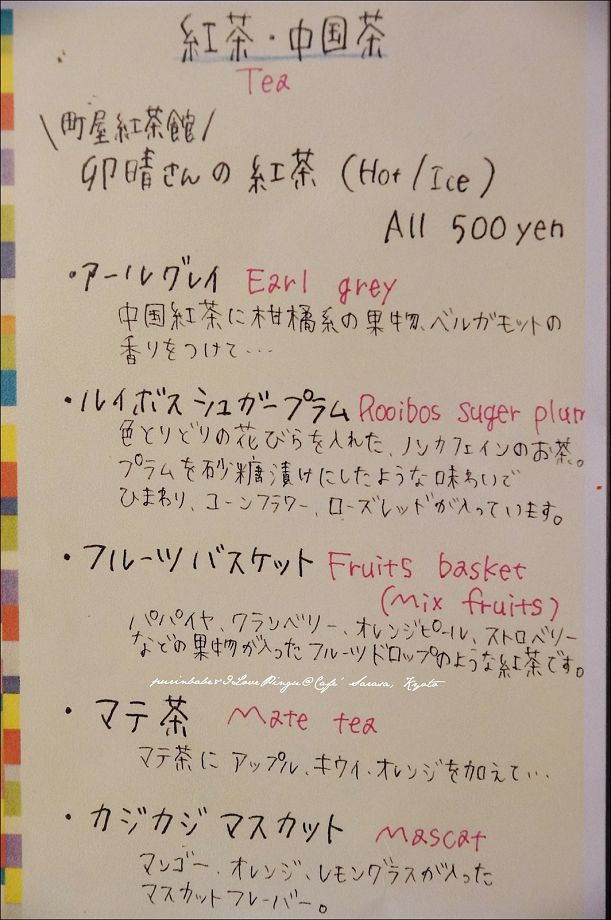 紅茶・中国茶
Tea
\町屋紅茶館/
卯晴さんの紅茶 (Hot/Ice)
All 500yen
・アールグレイ Earl grey
中国紅茶に柑橘系の果物、ベルガモットの
香りをつけて…
・ルイボスシュガープラム Rooibos suger plum
色とりどりの花びらを入れた、ノンカフェインのお茶。
プラムを砂糖漬けにしたような味わいで
ひまわり、コーンフラワー、ローズレッドが入っています。
・フルーツバスケット Fruits basket
(Mix fruits)
パパイヤ、クランベリー、オレンジピール、ストロベリー
などの果物が入ったフルーツドロップのような紅茶です。
purinbabe & I Love Pingu @ Cafe' Sarasa, Kyoto
・マテ茶 Mate tea
マテ茶に アップル、キウイ、オレンジを加えて…
・カジカジマスカット Mascat
マンゴー、オレンジ、レモングラスが入った
マスカットフレーバー。